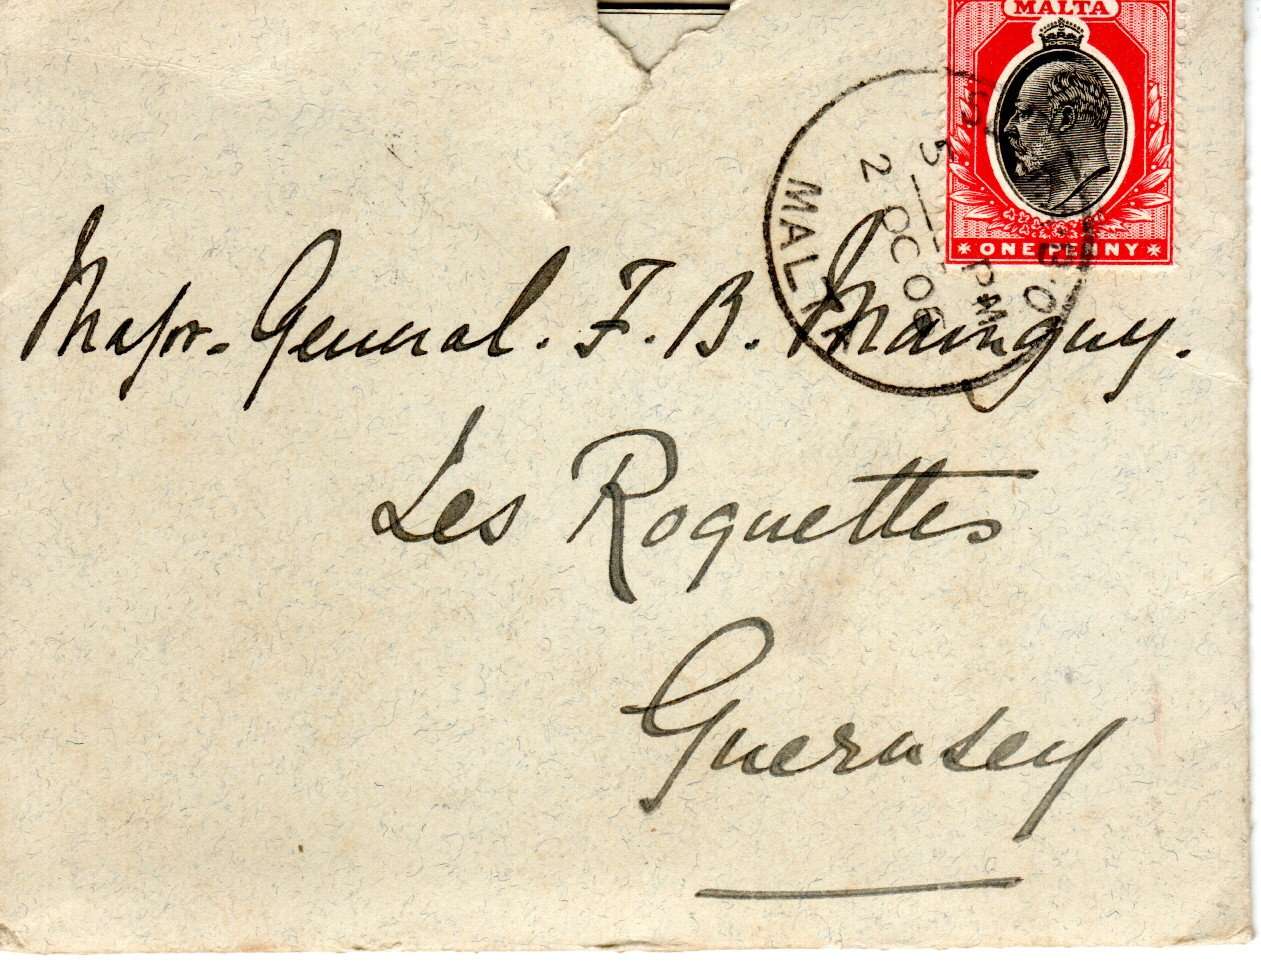 MALTA
ONE PENNY
MALTA
5 PM
2 OC 06
Major-General. F. B. Mainguy.
Les Roquettes
Guernsey